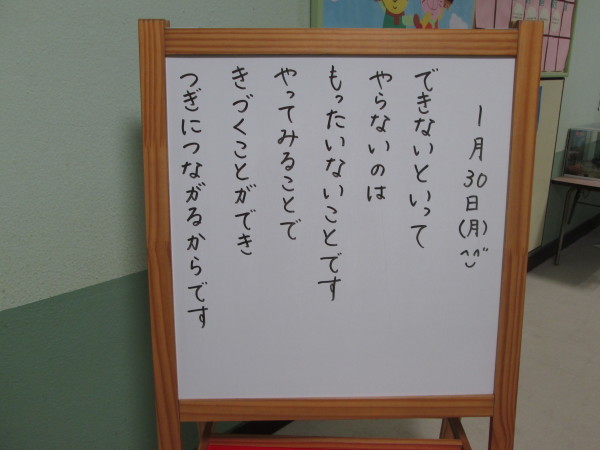 1月30日(月)^^
できないといって
やらないのは
もったいないことです
やってみることで
きづくことができ
つぎにつながるからです